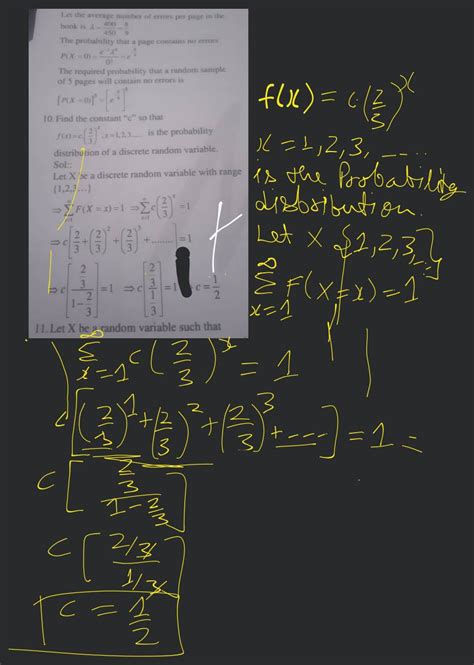 Let the average number of errors per page in the
book is λ = 400/450 = 8/9
The probability that a page contains no errors
P(X = 0) = e^-λ λ^0 / 0! = e^-8/9
The required probability that a random sample
of 5 pages will contain no errors is
[P(X = 0)]^5 = [e^-8/9]^5
10. Find the constant "c" so that
f(x) = c.(2/3)^x, x = 1,2,3,..... is the probability
distribution of a discrete random variable.
Sol:
Let X be a discrete random variable with range
{1,2,3...}
⇒ ∑ F(X = x) = 1 ⇒ ∑ c(2/3)^x = 1
⇒ c[2/3 + (2/3)^2 + (2/3)^3 + ........] = 1
⇒ c[(2/3)/(1 - 2/3)] = 1 ⇒ c[(2/3)/(1/3)] = 1 c = 1/2
11. Let X be a random variable such that
f(x) = c.(2/3)^x
x = 1,2,3, ----
is the Probability
distribution.
Let X {1,2,3,--}
∑_{x=1}^∞ F(X=x) = 1
∑_{x=1}^∞ c(2/3)^x = 1
c[(2/3)^1 + (2/3)^2 + (2/3)^3 + ---] = 1 =
c[(2/3)/(1 - 2/3)]
c[(2/3)/(1/3)]
c = 1/2